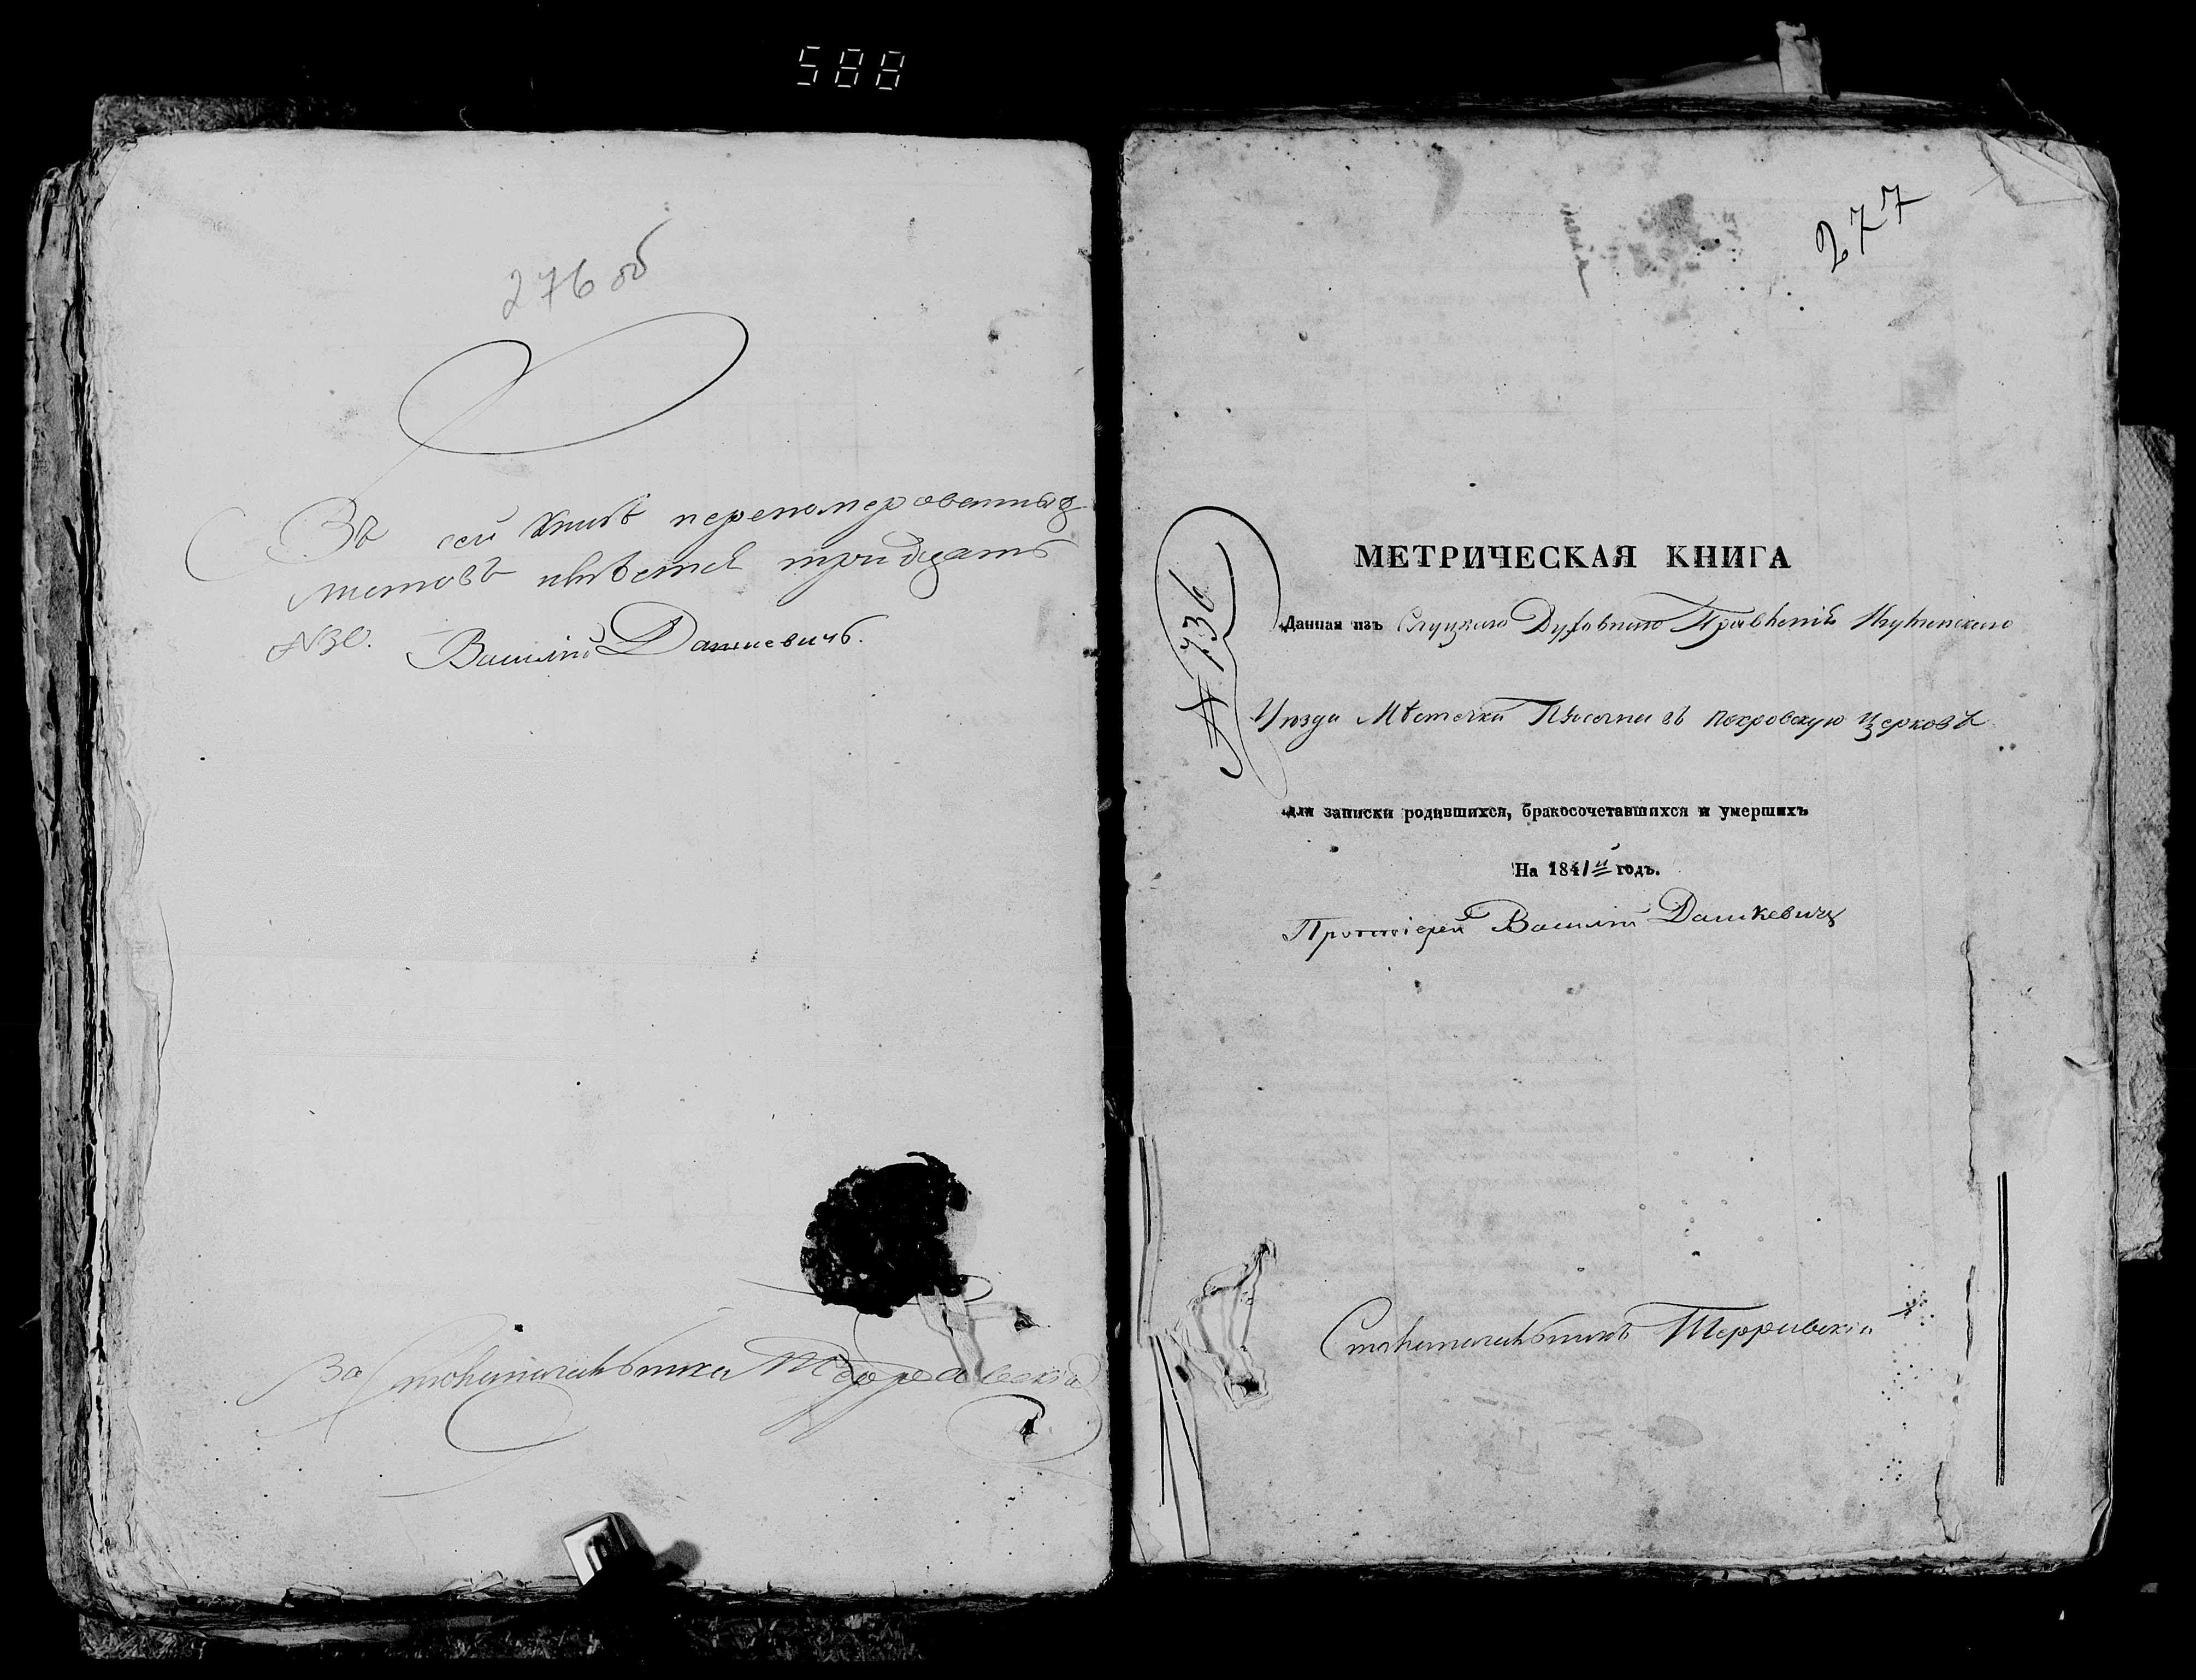 588
276 об
Въ сей книгѣ перепомерованныхъ
листовъ имѣется тридцать
№ 30. Василій Дашкевичъ.
За Столоначальника Терравскій
277
№ 736
МЕТРИЧЕСКАЯ КНИГА
Данная изъ Слуцкаго Духовнаго Правленія Игуменскаго
Уѣзда Мѣстечка Пѣсочна въ Покровскую Церковь
для записки родившихся, бракосочетавшихся и умершихъ
На 1841й годъ.
Протоіерей Василій Дашкевичъ
Столоначальникъ Терравскій